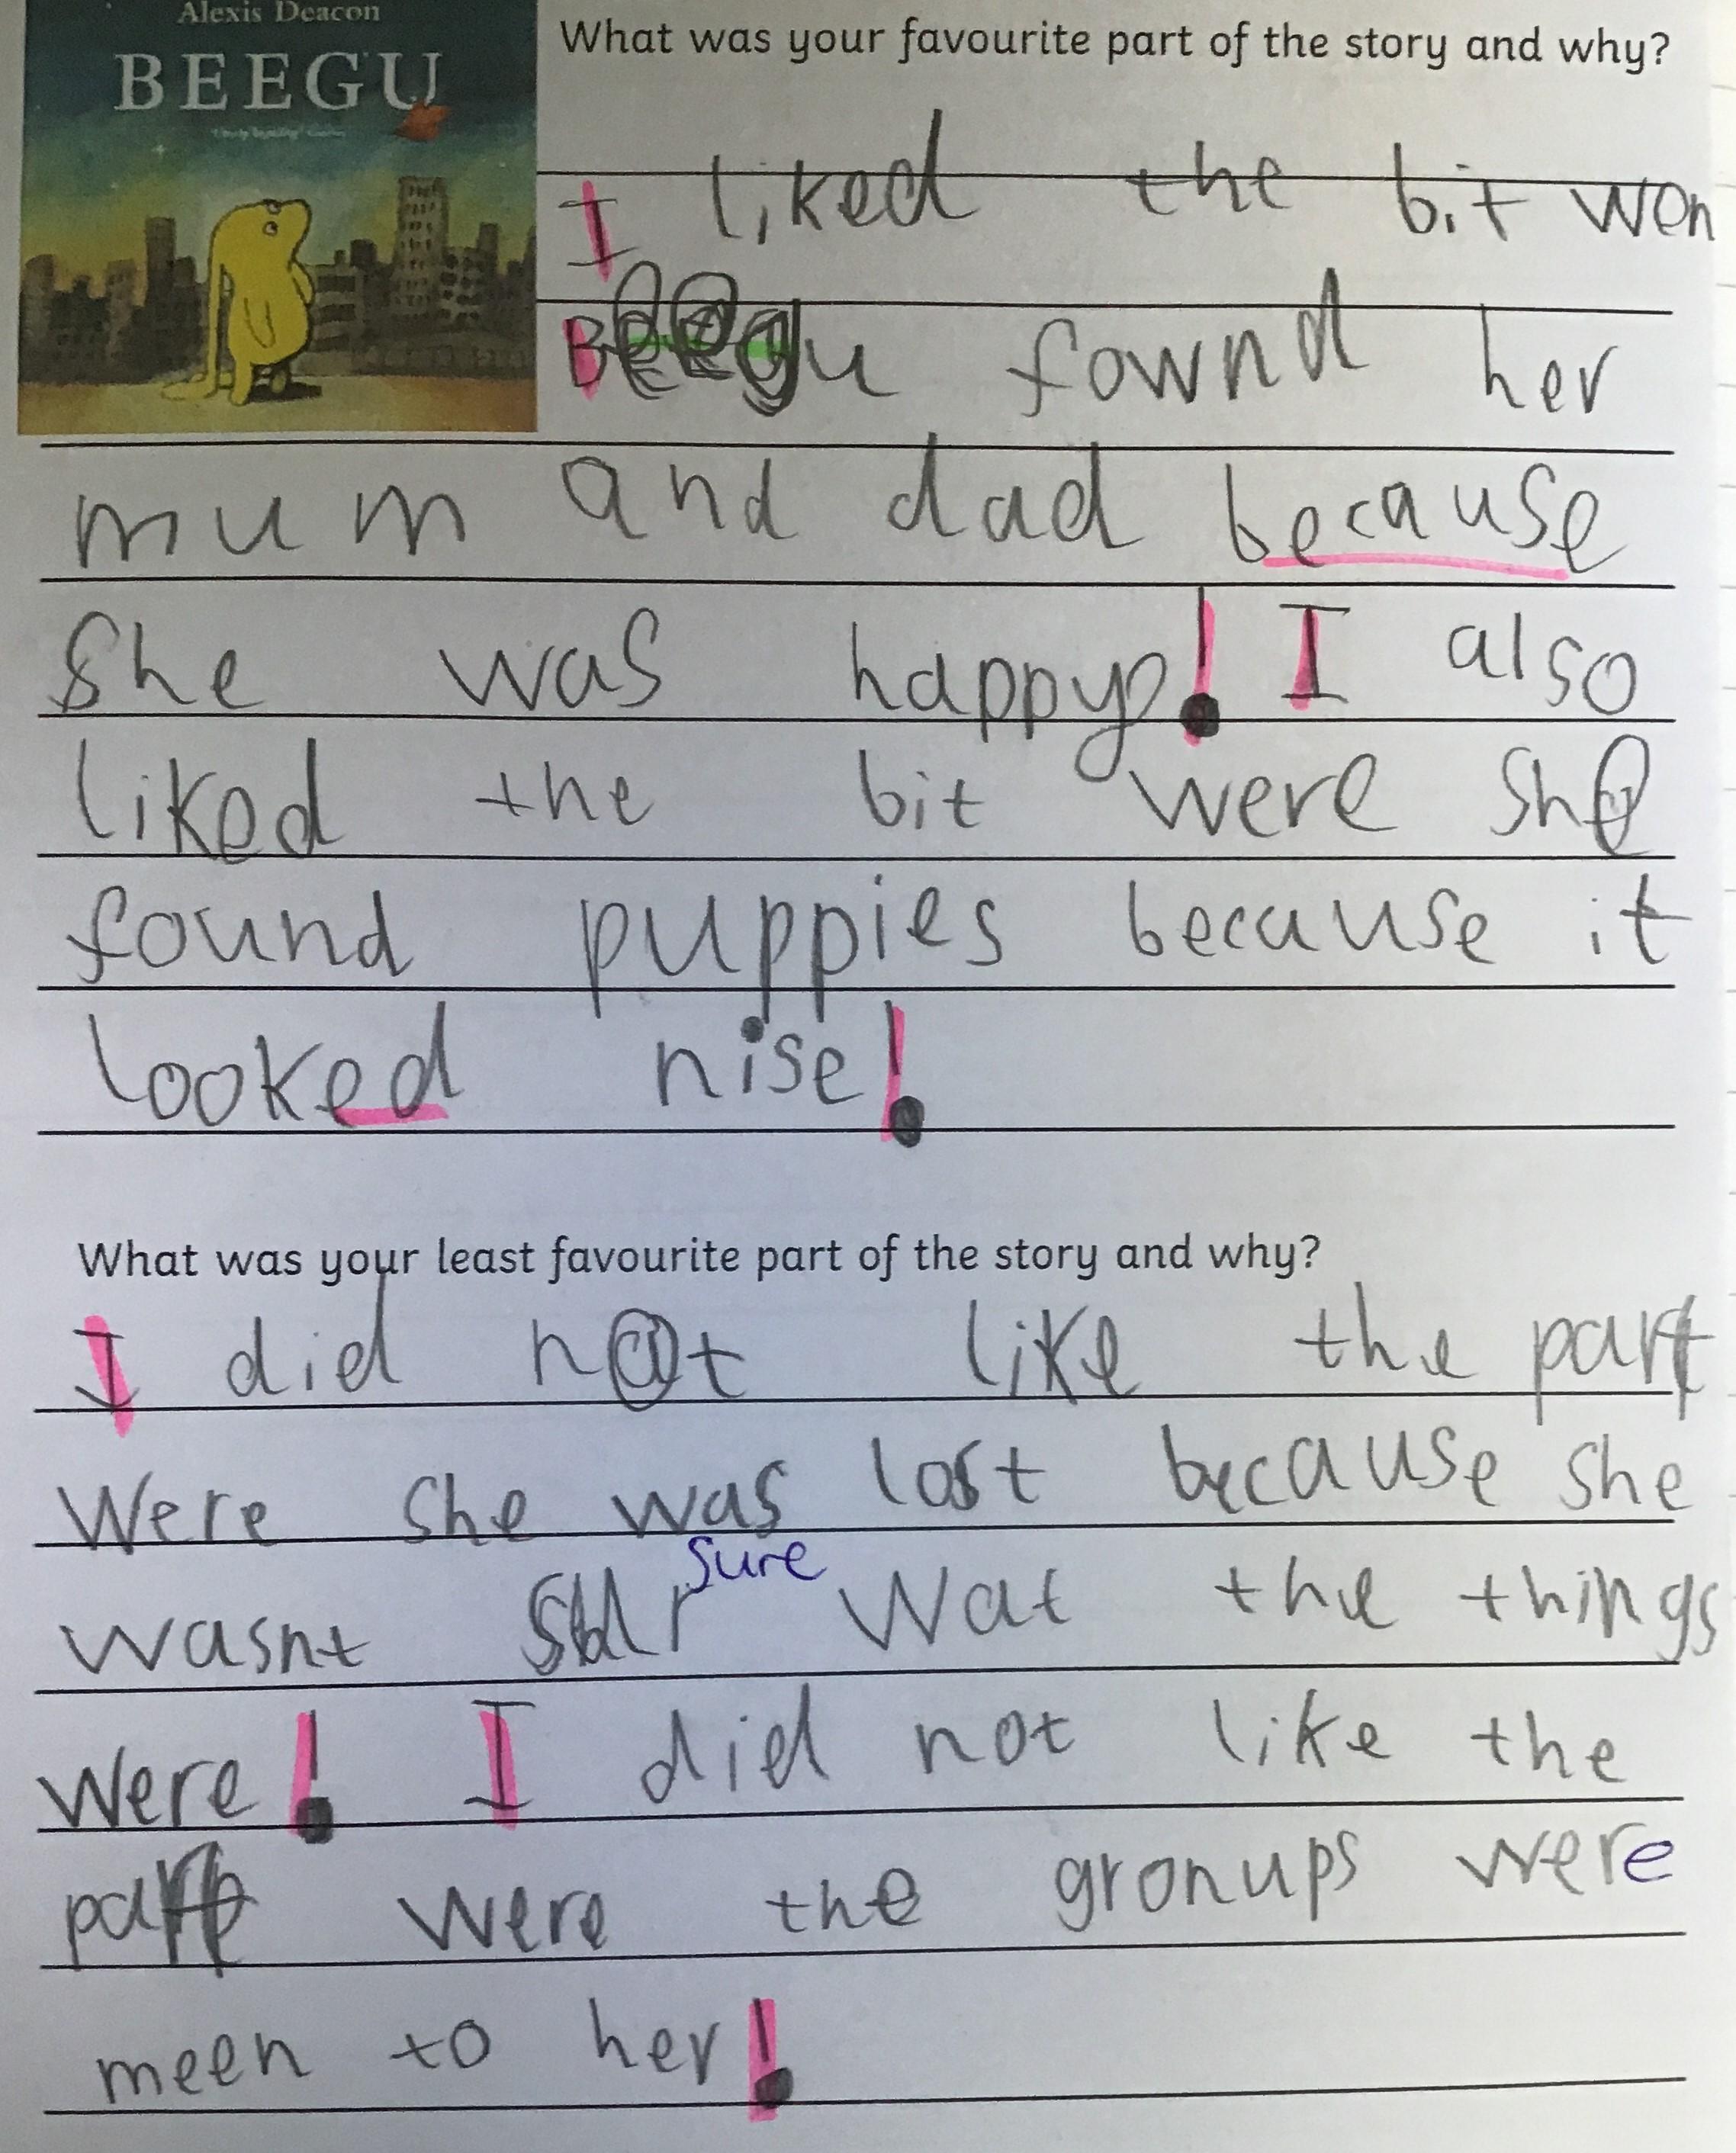 Alexis Deacon
BEEGU
What was your favourite part of the story and why?
I liked the bit wen
Beegu fownd her
mum and dad because
she was happy! I also
liked the bit were she
found puppies because it
looked nise!
What was your least favourite part of the story and why?
I did not like the part
Were she was lost because she
wasnt sure Wat the things
were! I did not like the
part were the gronups were
meen to her!